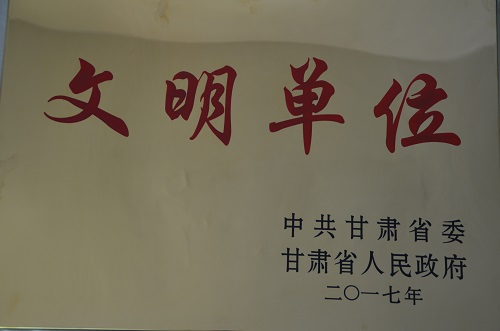 文明单位
中共甘肃省委
甘肃省人民政府
二〇一七年